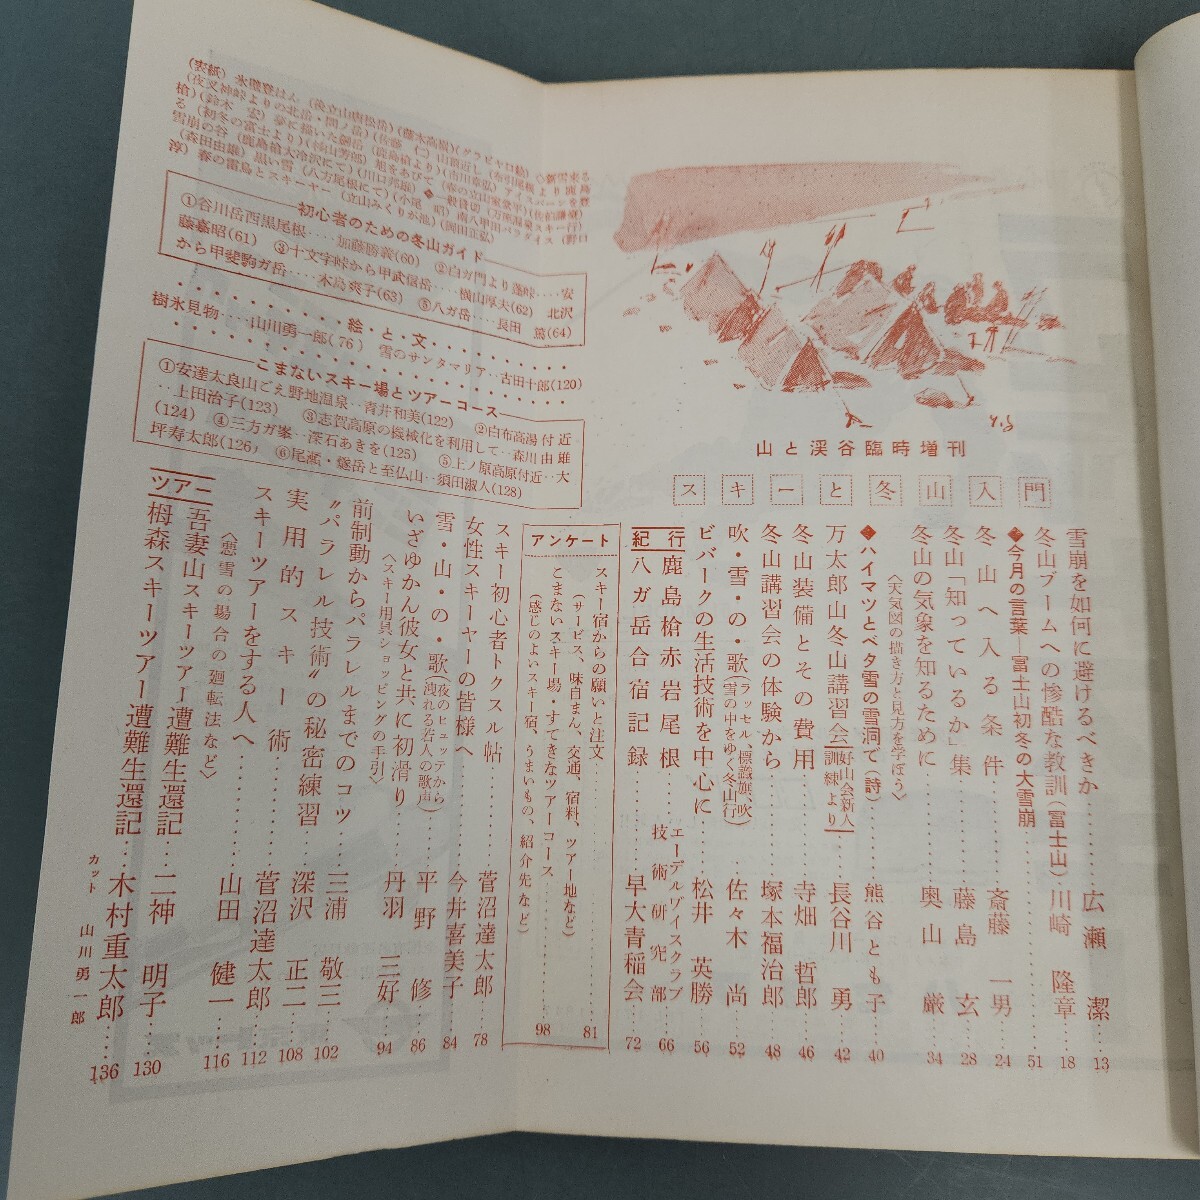 山と渓谷臨時増刊
スキーと冬山入門
雪崩を如何に避けるべきか……広瀬 潔 13
冬山ブームへの惨酷な教訓(富士山)川崎 隆章 18
◆今月の言葉―富士山初冬の大雪崩……51
冬山へ入る条件……斎藤 一男 24
冬山「知っているか」集……藤島 玄 28
冬山の気象を知るために……奥山 巌 34
〈天気図の描き方と見方を学ぼう〉
◆ハイマツとベタ雪の雪洞で(詩)……熊谷とも子 40
万太郎山冬山講習会(好山会新人訓練より)長谷川 勇 42
冬山装備とその費用……寺畑 哲郎 46
冬山講習会の体験から……塚本福治郎 48
吹・雪・の・歌(ラッセル、標識旗、吹雪の中をゆく冬山行)……佐々木 尚 52
ビバークの生活技術を中心に……松井 英勝 56
紀行
鹿島槍赤岩尾根 エーデルヴイスクラブ技術研究部 66
八ガ岳合宿記録……早大青稲会 72
アンケート
スキー宿からの願いと注文……81
(サービス、味自まん、交通、宿料、ツアー地など)
こまないスキー場・すてきなツアーコース……98
(感じのよいスキー宿、うまいもの、紹介先など)
スキー初心者トクスル帖……菅沼達太郎 78
女性スキーヤーの皆様へ……今井喜美子 84
雪・山・の・歌(夜のヒュッテから洩れる若人の歌声)……平野 修 86
いざゆかん彼女と共に初滑り……丹羽 三好 94
〈スキー用具ショッピングの手引〉
前制動からパラレルまでのコツ……三浦 敬三 102
“パラレル技術”の秘密練習……深沢 正二 108
実用的スキー術……菅沼達太郎 112
スキーツアーをする人へ……山田 健一 116
〈悪雪の場合の廻転法など〉
ツアー
吾妻山スキーツアー遭難生還記……二神 明子 130
栂森スキーツアー遭難生還記……木村重太郎 136
カット 山川勇一郎
初心者のための冬山ガイド
①谷川岳西黒尾根‥‥加藤勝義(60) ②白ガ門より蓬峠‥‥安
藤嘉昭(61) ③十文字峠から甲武信岳‥‥横山厚夫(62) 北沢
から甲斐駒ガ岳‥‥木島爽子(63) ⑤八ガ岳‥‥長田 篤(64)
絵・と・文
樹氷見物‥‥山川勇一郎(76) 雪のサンタマリア‥古田十郎(120)
こまないスキー場とツアーコース
①安達太良山ごえ野地温泉‥青井和美(122) ②白布高湯付近
‥上田治子(123) ③志賀高原の機械化を利用して‥森川由雄
(124) ④三方ガ峯‥深石あきを(125) ⑤上ノ原高原付近‥大
坪寿太郎(126) ⑥尾瀬・燧岳と至仏山‥須田淑人(128)
Y.S